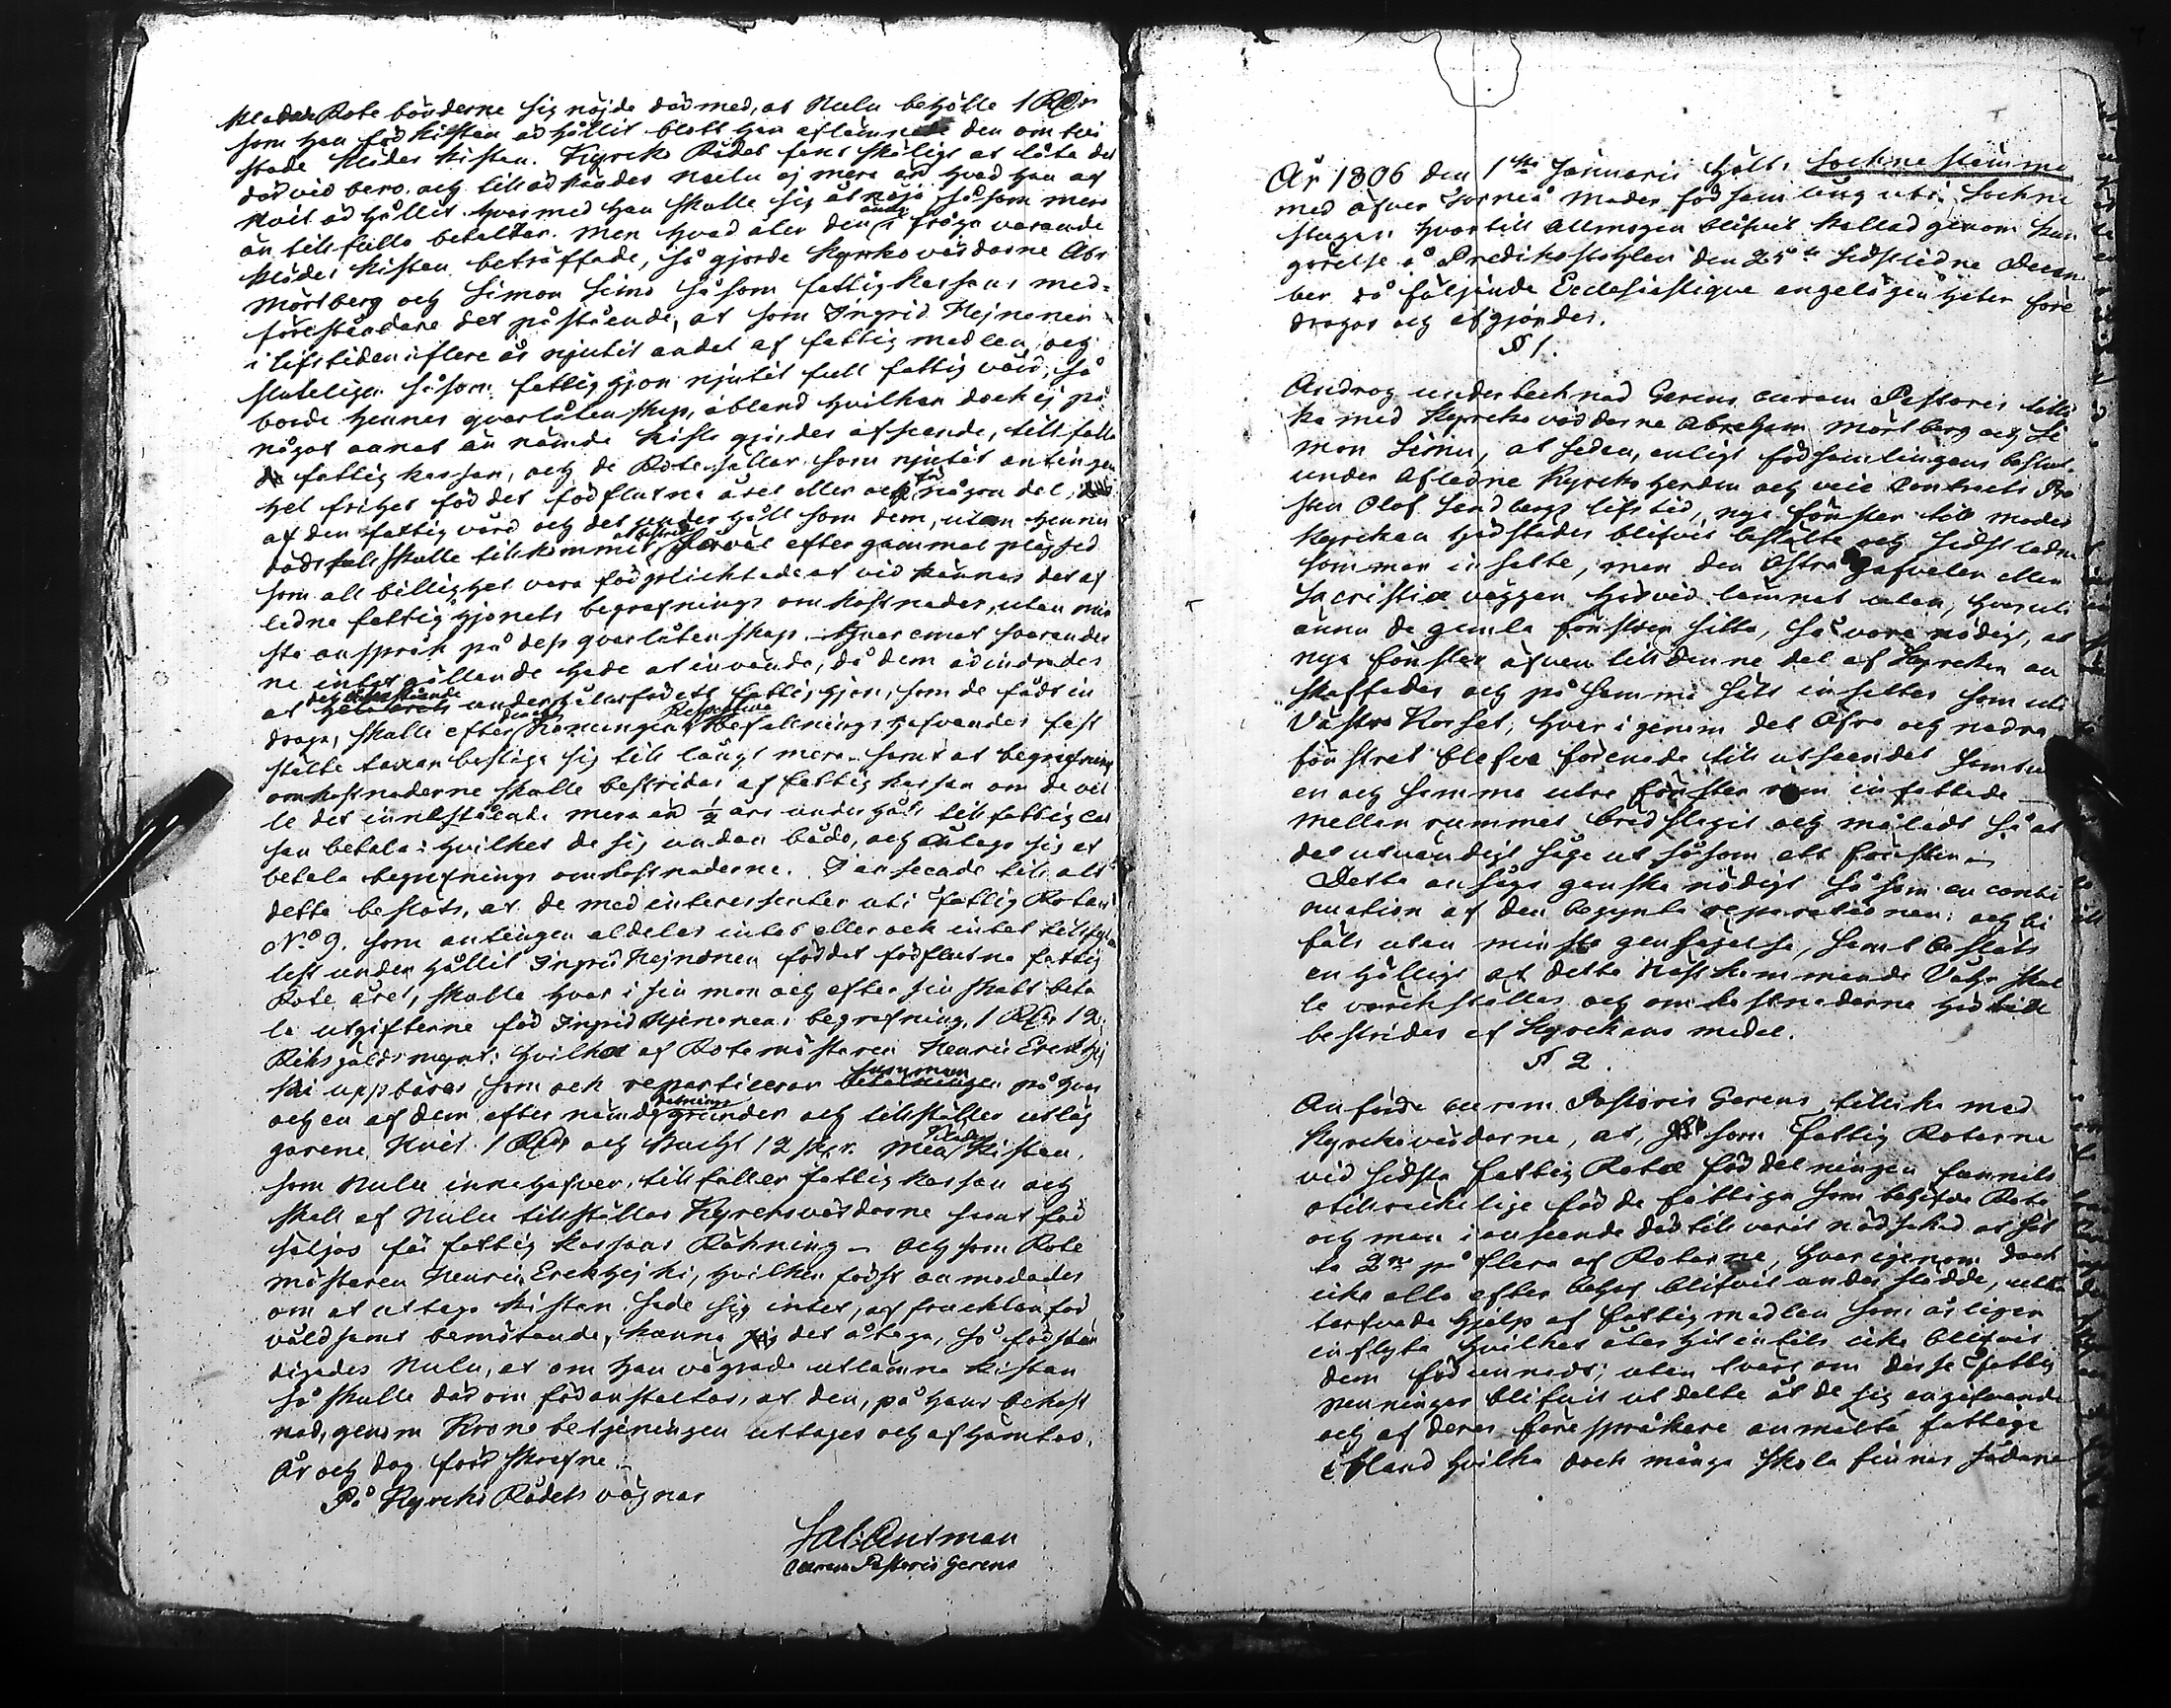 Rote bönderne sig nöjde där med, at Nulu behölle 1 Rdr
som han för kisten ärhållit blott han aflämnade den om tvi
stade kläder kisten. Kyrcko Rådet fant skäligt at låta det
där vid bero. och till ärkändes Nulu ej mera än hvad han af
Kvit ärhållit. hvarmed han skulle sig åtnöja, såsom mer
än till fullo betalter. Men hvad åter den ännu i fråga varande
kläder kisten beträffade, så gjorde Kyrko värdarne Abr
Mörtberg och Simon Simo såsom fattig kassans med-
föreståndare det påstående, at som Ingrid Hejnonen
i lifstiden i flere år njutit andel af fattig medlen, och
sluteligen såsom fattig hjon njutit full fattig vård, så
borde hennes qvarlåtenskap, ibland hvilken dock ej på
något annat än nämde kista gjordes afseende, till falla
fattig kassan, och de Rotehållar som njutit antingen
hel frihet för det förflutne året eller ock för någon del,
af den fattig vård och det underhåll som dem, utom hennes
dödsfall skulle tillkommit at bestrida, efter gammal plägsed
som all billighet vara förplicktade at vid kännas det af
ledne fattig hjonets begrafnings omkostnader, utan min
sta anspråk på dess qvarlåtenskap. Hvar emot svarander
ne intet gällande hade at invända, då dem ärindrades
at det återstående underhålet för ett fattighjon, som de fådt in
draga, skulle efter Konungens Befallningshafvandes fast
stälte taxan bestiga sig till långt mera. samt at begrafning
omkostnaderne skulle bestridas af fattig kassan om de vil
le det innestående mera än ½ års underhåll till fattig cas
san betala: hvilket de sig undan bådo, och åtogo sig at
betala begrafnings omkostnaderne. I anseende till alt
detta beslöts, at de med interessenter uti fattig Rotan
No 9. som antingen aldeles intet eller ock intet tillfyl
lest underhållit Ingrid Hejnonen för det förflutna fattig
Rote året, skulle hvar i sin mon och efter sin skatt beta
la utgifterne för Ingrid Hejnonens begrafning, 1 Rdr 12
Riksgälds mynt: hvilket af Rotemästaren Henric Erckhej
ki uppbäres, som ock reparticerar summan på hvar
och en af dem efter nämde grunder och tillställer utläg
garene Kvit 1 Rdr och 12 sk. Men kläder kisten,
som Nulu innehafver, tillfaller fattig kassan och
skall af Nulu tillställas Kyrckovärdarne samt för
säljas för fattig kassans Räkning – och som Rote
mästaren Henric Erckhejki, hvilken först anmodades
om at uttaga kisten sade sig intet, af fruktan för
våldsamt bemötande, kunna det åtaga, så förstän
digades Nulu, at om han vägrade utlämna kisten
så skulle där om föranstaltas, at den, på hans bekost
nad, genom Krono betjeningen uttages och afhämtas.
År och dag förr skrefne.
På Kyrcko Rådets vägnar
curam Pastoris Gerens
År 1806 den 1sta Januarii hölts Sockne stämma
med öfver Torneå Moder församling uti Sockne
stugan hvartill Allmogen blifvit kallad genom kun
görelse å Predikostohlen den 25te sidstledne Decem
ber då följande Ecclesiastique angelägenheter före
drogos och afgjordes.
§ 1.
Androg underteknad Gerens curam Pastoris tilli
ka med Kyrckovärdarne Abraham Mörtberg och Si
mon Simu, at sedan, enligt församlingens beslut
under Aflidne Kyrkoherden och vice Contracts Pro
sten Olof Sandbergs lifstid, nya fönster till moder
kyrckan härstädes blifvit bestälte och sidstledne
sommar insatte, men den Östra gafvelen eller
Sacristiæ väggen härvid lämnat utan, hvaruti
ännu de gamla fönstren sitta, så vore nödigt, at
nya fönster äfven till denne del af Kyrckan an
skaffades och på samma sätt insattes som uti
Västra Korset, hvar igenom det Öfra och nedra
fönstret blefve förenade till utseendet samt
en och samma utra fönster ram infattade
mellan rummet brädslagit och målads så at
det utvändigt såge ut såsom ett fönster
Detta ansågs ganska nödigt såsom en conti
nuation af den begynta reparationen: och bi
fals utan minsta gensägelse, samt beslöts
enhälligt at detta nästkommande Vår skul
le värckställas och omkostnaderne här till
bestridas af Kyrckans medel.
§ 2.
Anförde curam Pastoris Gerens tillika med
Kyrckovärdarne, at, som fattig Roterne
vid sidsta fattig Rote fördelningen funnits
otillräckelige för de fattiga som behöfde Rote
och man i anseende därtill varit nödsakad at sät
ta 2ne på flera af Roterne, hvarigenom dock
icke alla efter behof blifvit understödde, utan
tarfvade hjelp af fattigmedlen som årligen
inflyta hvilket åter hitintils icke blifvit
dem förunnadt; utan tvärt om desse fattig
penningar blifvit utdelte åt de sig angifvande
och af deras förespråkare anmälte fattige
ibland hvilka dock många skola finnas sådane